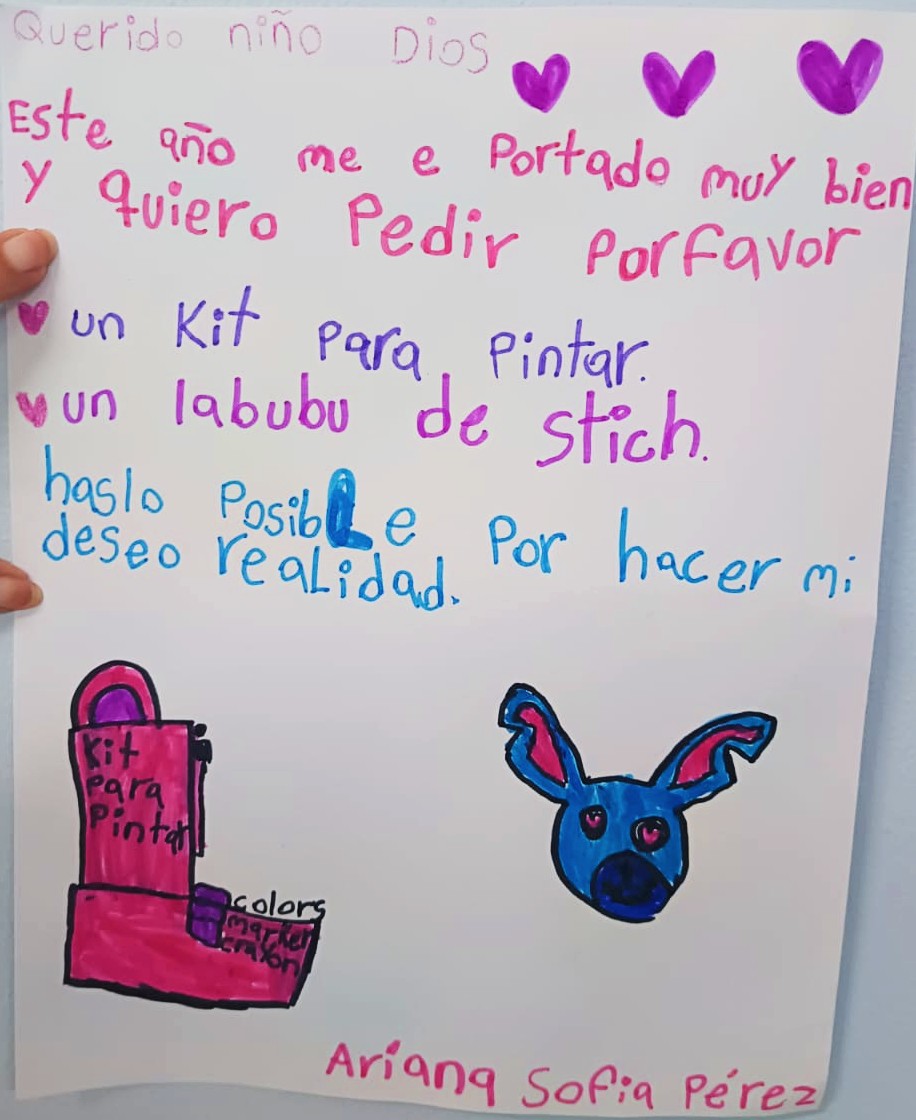 Querido niño Dios
Este año me e Portado muy bien
y quiero Pedir Porfavor
un Kit Para Pintar.
un labubu de stich.
haslo PosibLe Por hacer mi
deseo reaLidad.
Kit
Para
Pintar
colors
marker
crayon
Ariana Sofia Pérez